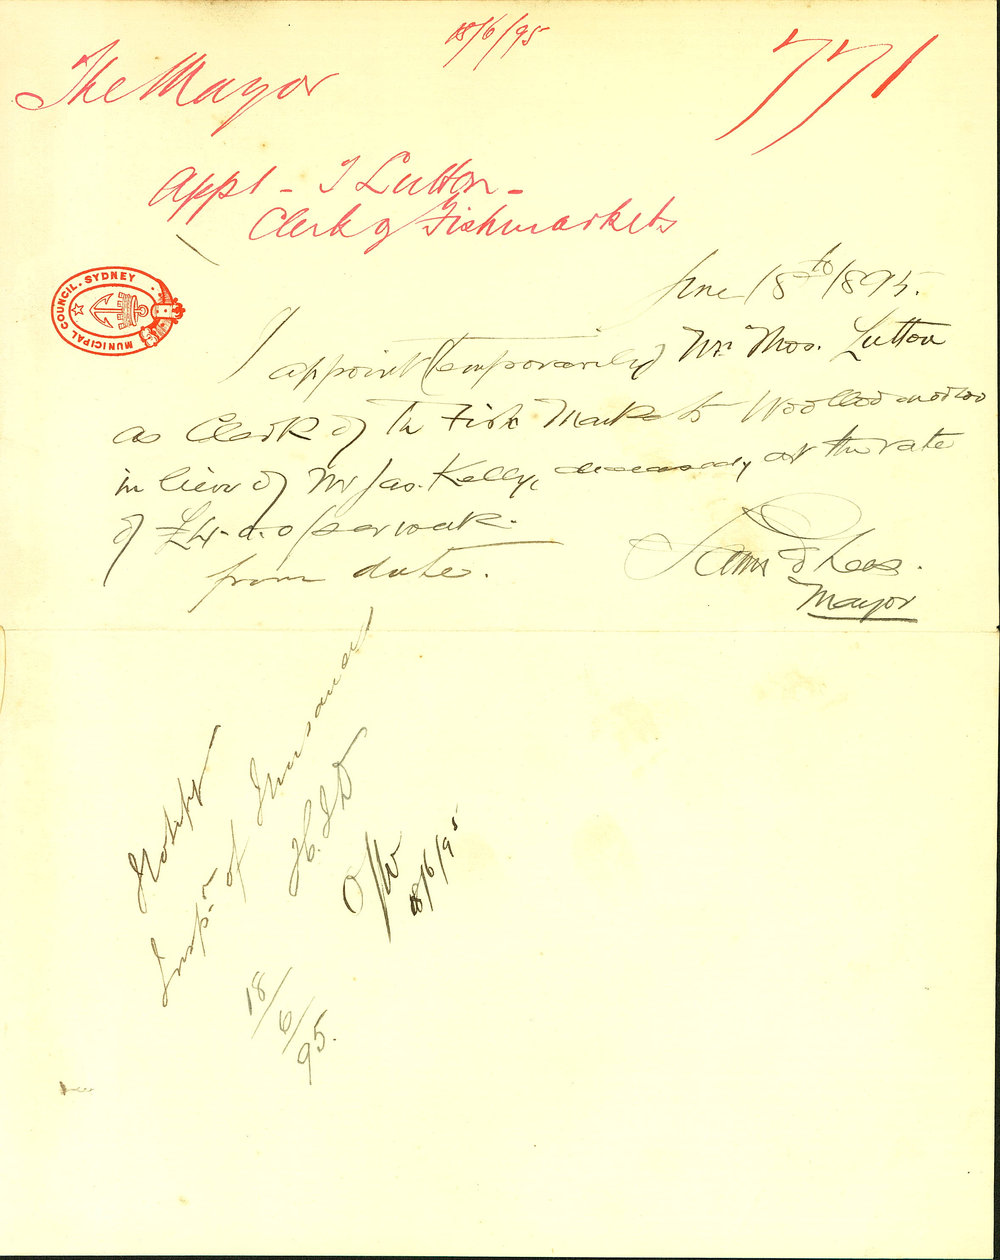 18/6/95
771
The Mayor
Appt - T Lutton -
Clerk of Fishmarkets
MUNICIPAL COUNCIL. SYDNEY
June 18th 1895.
I appoint (temporarily) Mr Thos. Lutton
as Clerk of the Fish Markets Woolloomooloo
in lieu of Mr Jas. Kelly, deceased, at the rate
of £4-0-0 per week.
from date.
Saml E Lees.
Mayor
Notify
Inspr. of Nuisances
18/6/95
18/6/95.